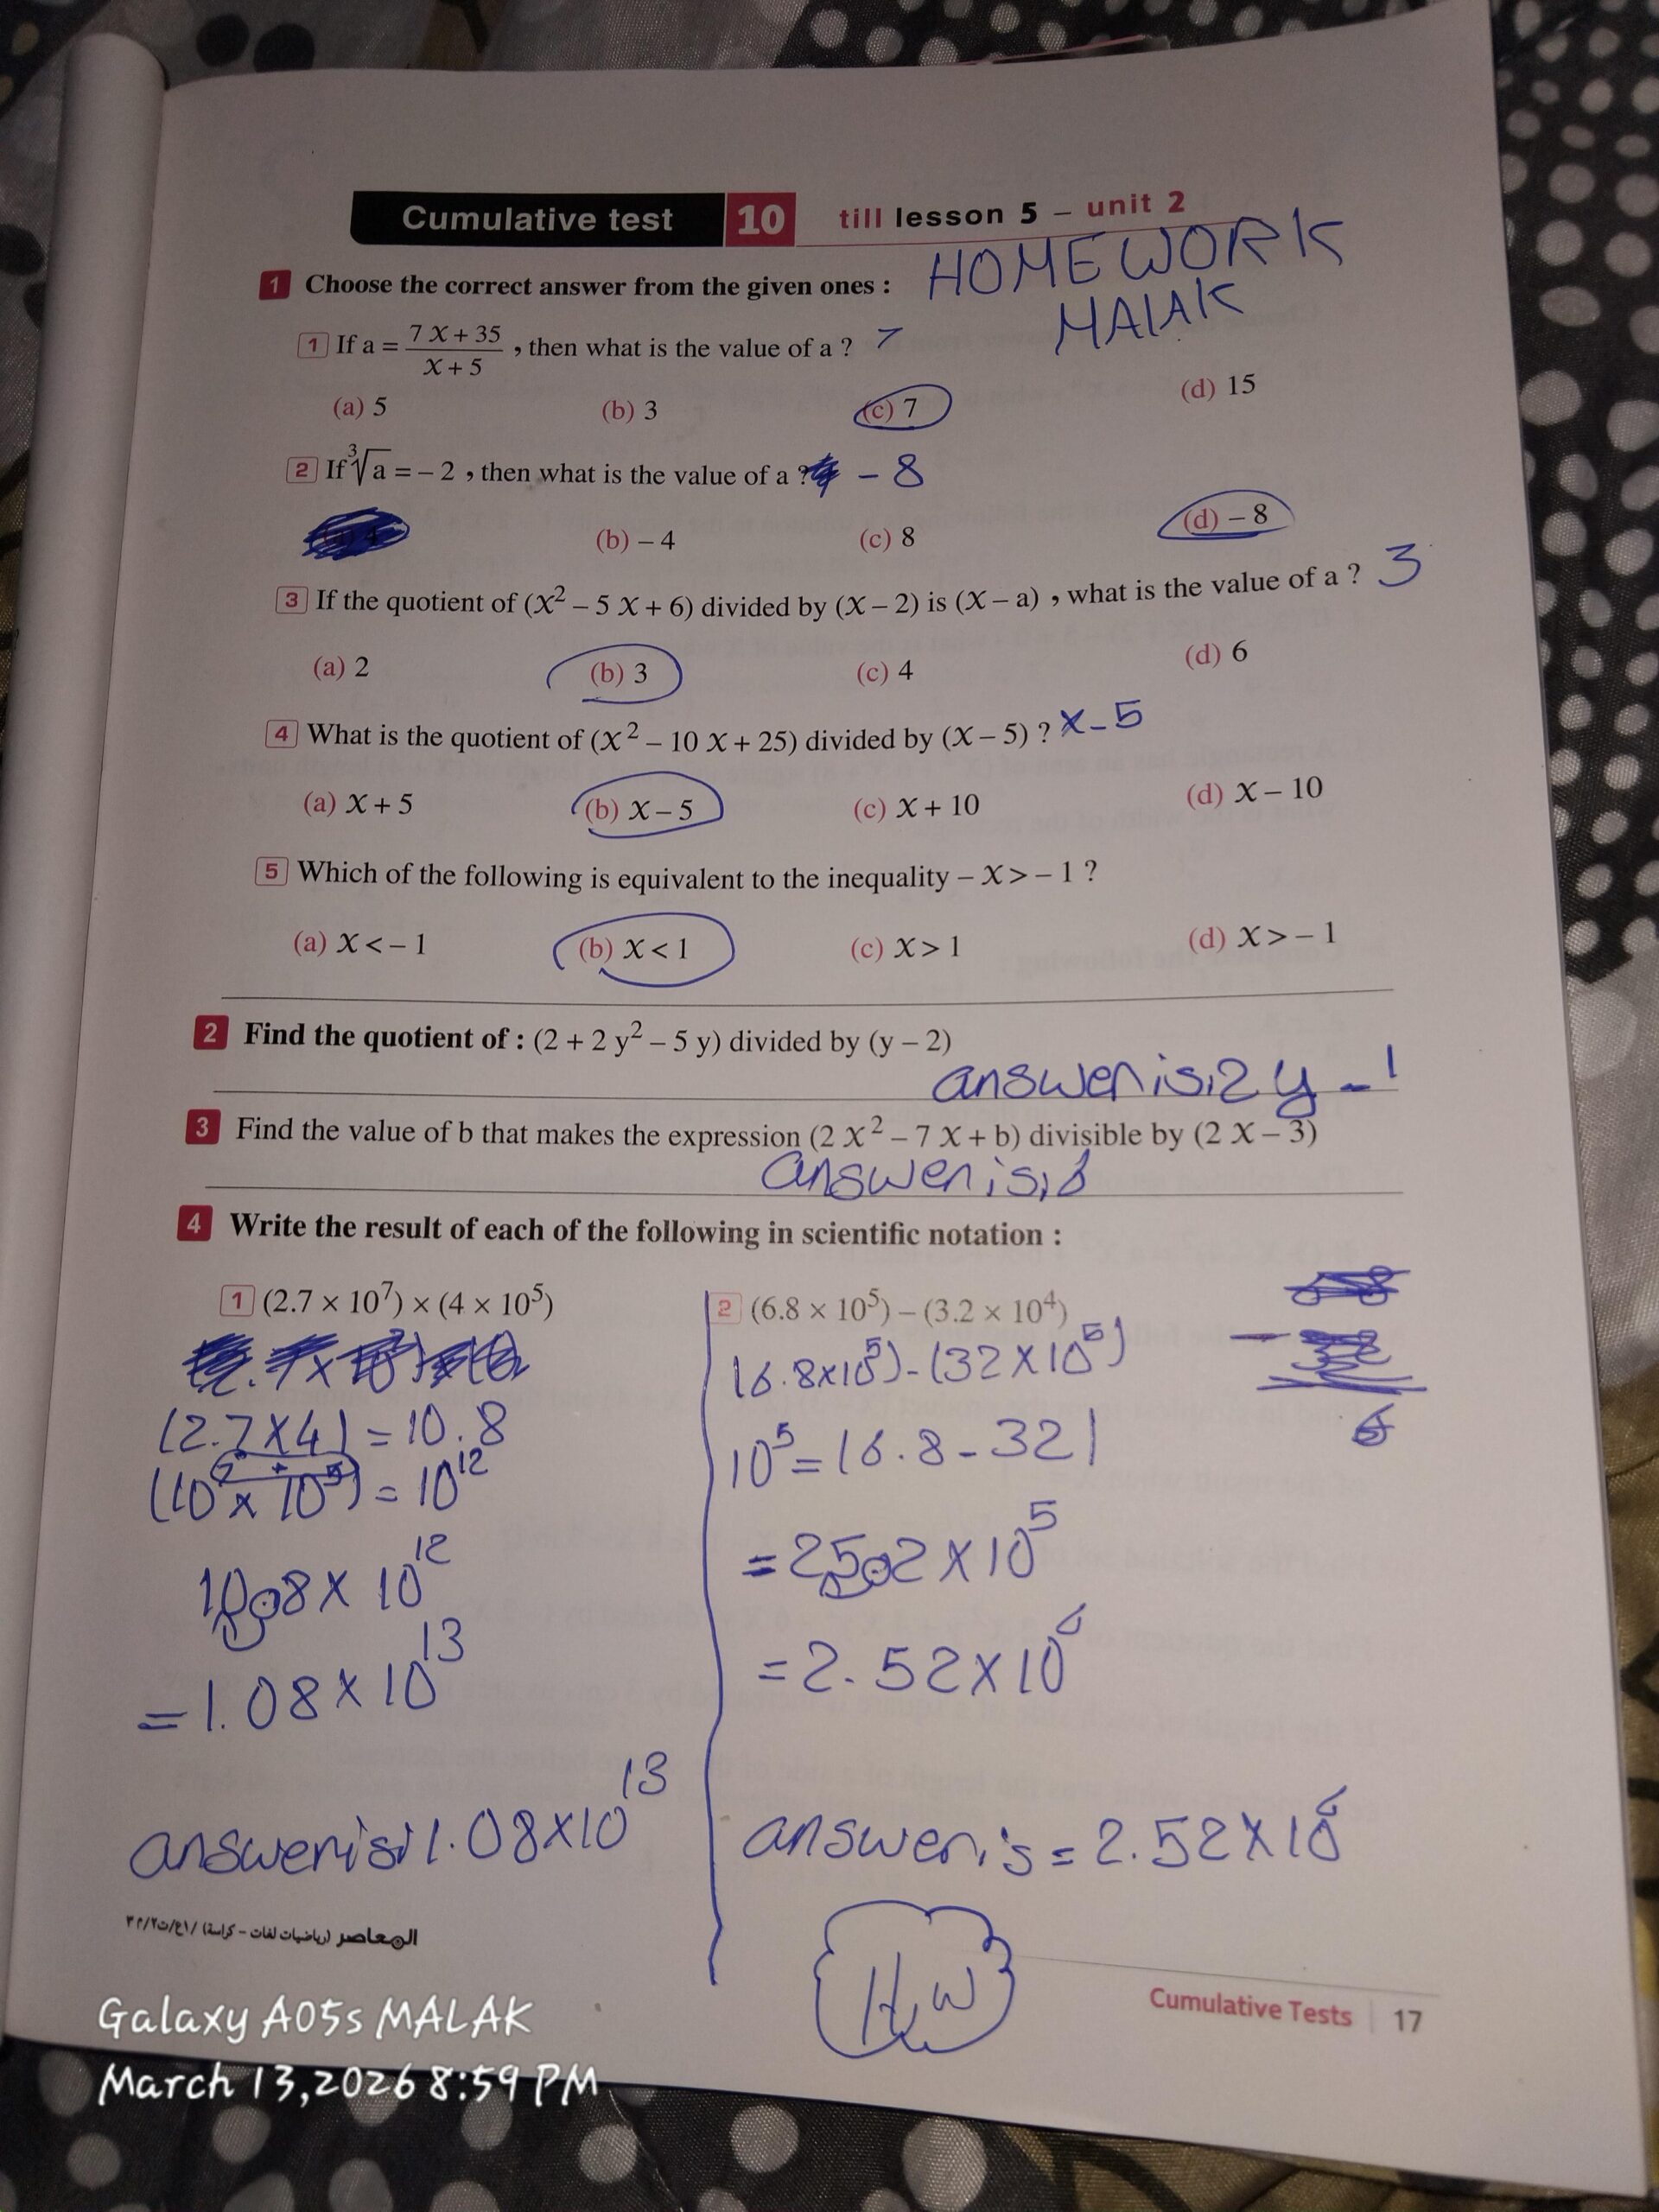 Cumulative test 10 till lesson 5 – unit 2
HOMEWORK
MALAK
1 Choose the correct answer from the given ones :
1 If a = (7 X + 35)/(X + 5) , then what is the value of a ? 7
(a) 5 (b) 3 (c) 7 (d) 15
2 If ∛a = – 2 , then what is the value of a ? - 8
(a) 4 (b) – 4 (c) 8 (d) – 8
3 If the quotient of (X² – 5 X + 6) divided by (X – 2) is (X – a) , what is the value of a ? 3
(a) 2 (b) 3 (c) 4 (d) 6
4 What is the quotient of (X² – 10 X + 25) divided by (X – 5) ? X-5
(a) X + 5 (b) X – 5 (c) X + 10 (d) X – 10
5 Which of the following is equivalent to the inequality – X > – 1 ?
(a) X < – 1 (b) X < 1 (c) X > 1 (d) X > – 1
2 Find the quotient of : (2 + 2 y² – 5 y) divided by (y – 2)
answer is: 2y-1
3 Find the value of b that makes the expression (2 X² – 7 X + b) divisible by (2 X – 3)
answer is: 6
4 Write the result of each of the following in scientific notation :
1 (2.7 × 10⁷) × (4 × 10⁵)
(2.7X4) = 10.8
(10⁷ x 10⁵) = 10¹²
10.8X 10¹²
=1.08X10¹³
answer is: 1.08X10¹³
2 (6.8 × 10⁵) – (3.2 × 10⁴)
(6.8x10⁵)-(32X10⁵)
10⁵=(6.8-32)
=25.2X10⁵
=2.52X10⁶
answer is=2.52X10⁶
H,W
المعاصر (رياضيات لغات - كراسة) /١ع/ت٢/م٣
Cumulative Tests 17
Galaxy A05s MALAK
March 13,2026 8:59 PM